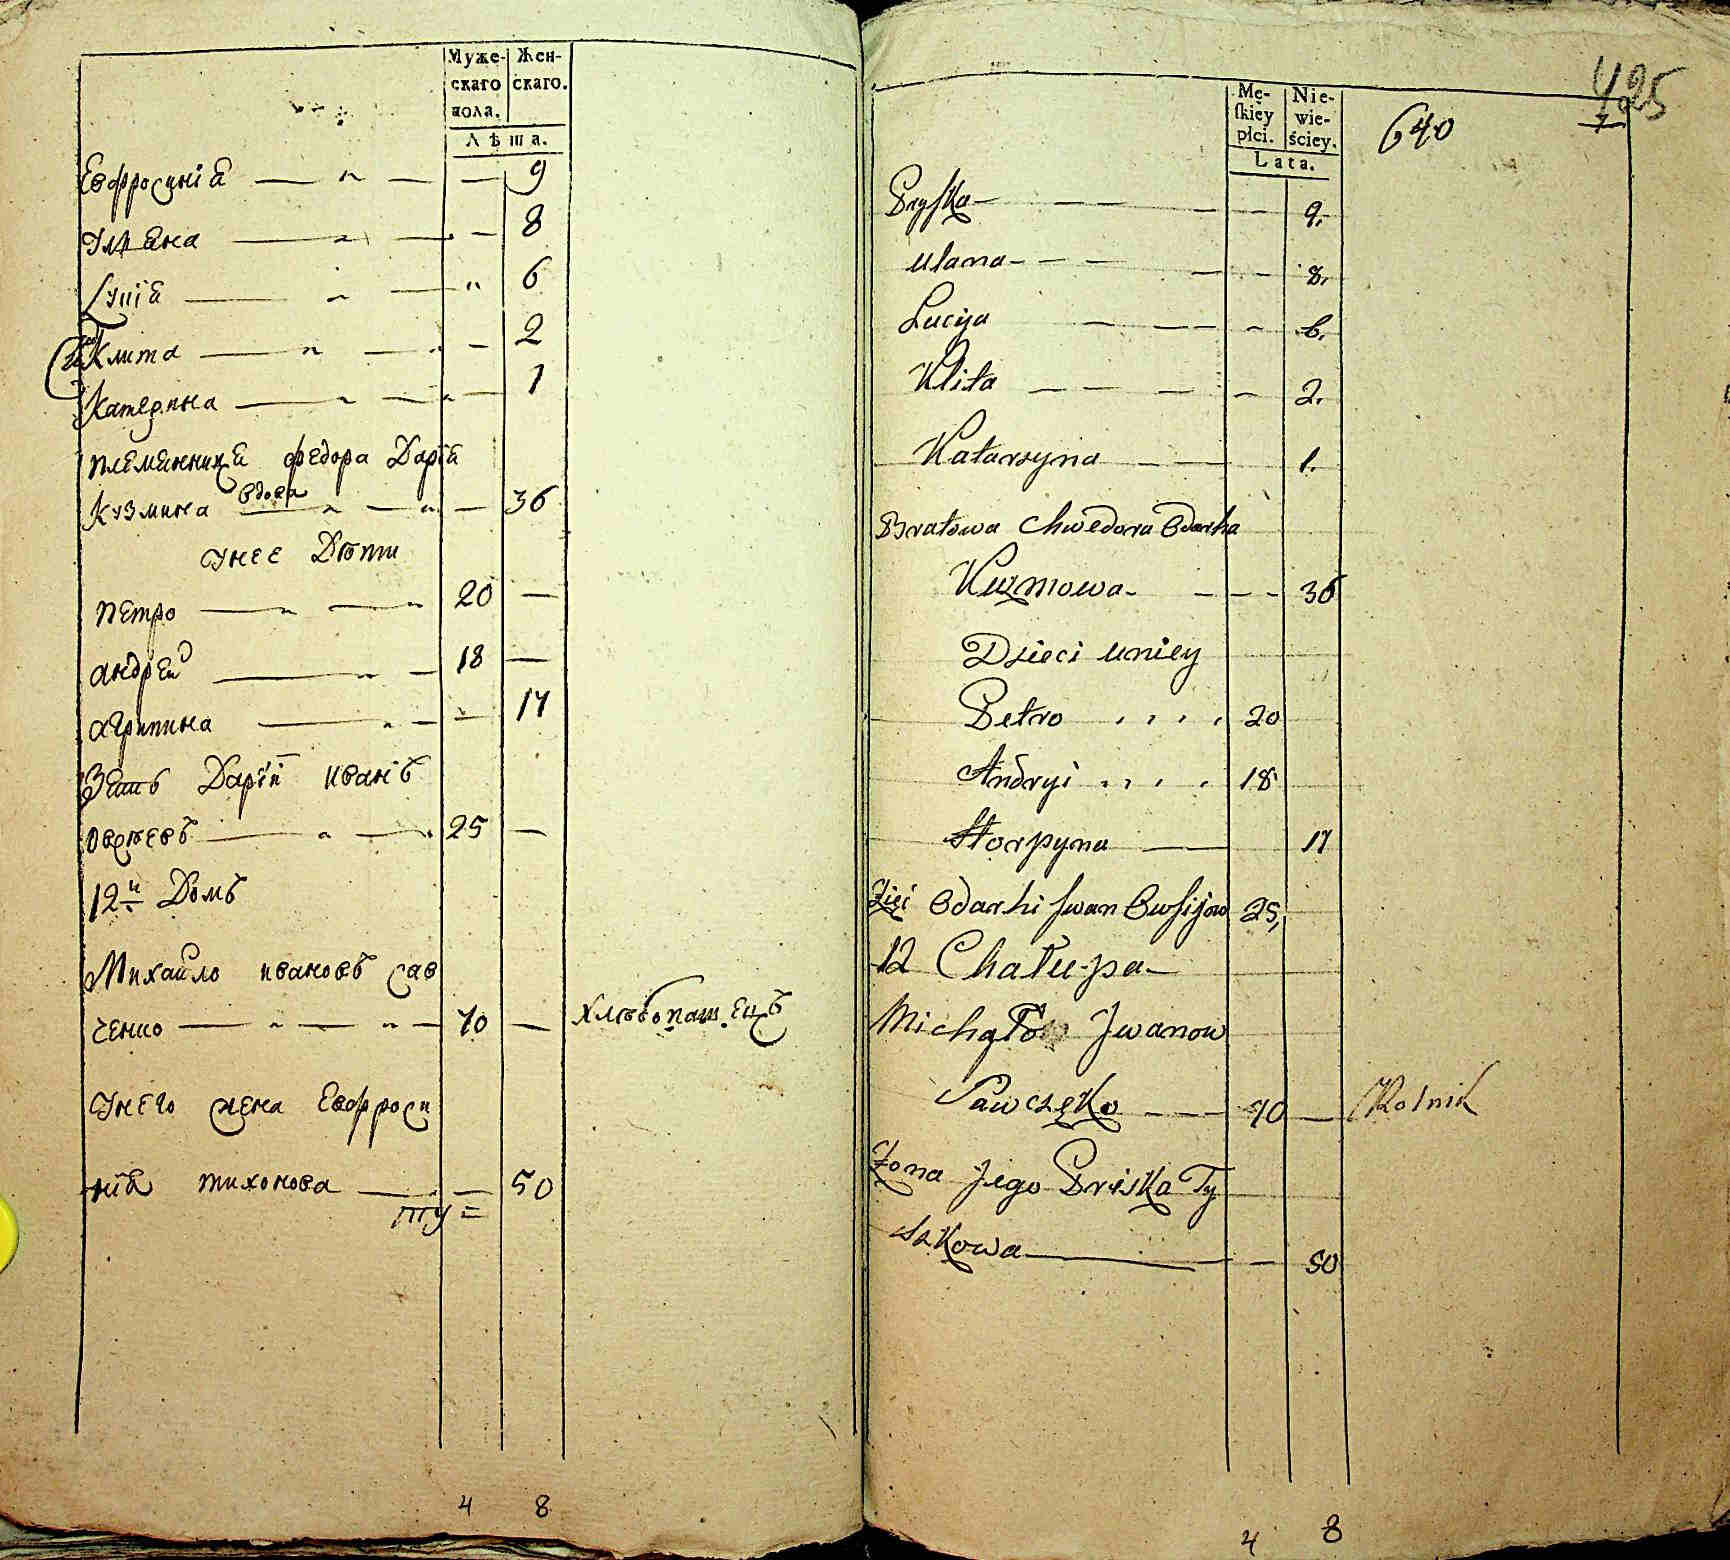 Муже-
скаго
пола.
Жен-
скаго.
Лѣта.
Евфросиніа — 9
Улиана — 8
Луціа — 6
Клита — 2
Катерина — 1
племенница федора Даріа
Кузмина вдова — 36
Унее Дѣти
Петро — 20 —
Андрей — 18 —
Агрипина — 17
Зять Даріи иванъ
овсѣевъ — 25 —
12й Домъ
Михайло ивановъ сав
ченко — 70 — Хлѣбопашецъ
Унего жена Евфроси
ніа тихонова — 50
4 8
Mę-
skiey
płci.
Nie-
wie-
ściey.
Lata.
640
425
Pryska — 9.
Ulana — 8.
Lucyja — 6.
Klita — 2.
Katarzyna — 1.
Bratowa Chwedora Odarka
Kuzmowa — 36
Dzieci uniey
Petro . . . . 20
Andryi . . . . 18
Horpyna — 17
Zięć Odarki Jwan Owsijow 25,
12 Chałupa
Michąło Jwanow
Sawczęko — 70 — Rolnik
Żona Jego Priska Ty
szkowa — 50
4 8